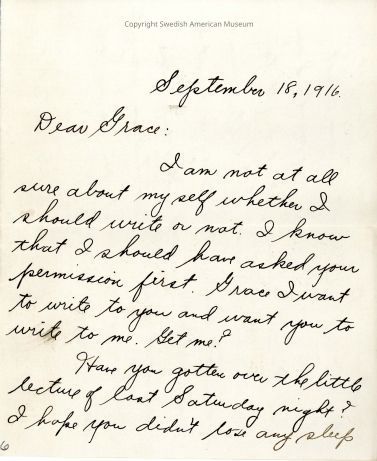 Copyright Swedish American Museum
September 18, 1916.
Dear Grace:
I am not at all
sure about my self whether I
should write or not. I know
that I should have asked your
permission first. Grace I want
to write to you and want you to
write to me. Get me?
Have you gotten over the little
lecture of last Saturday night?
I hope you didn't lose any sleep
6